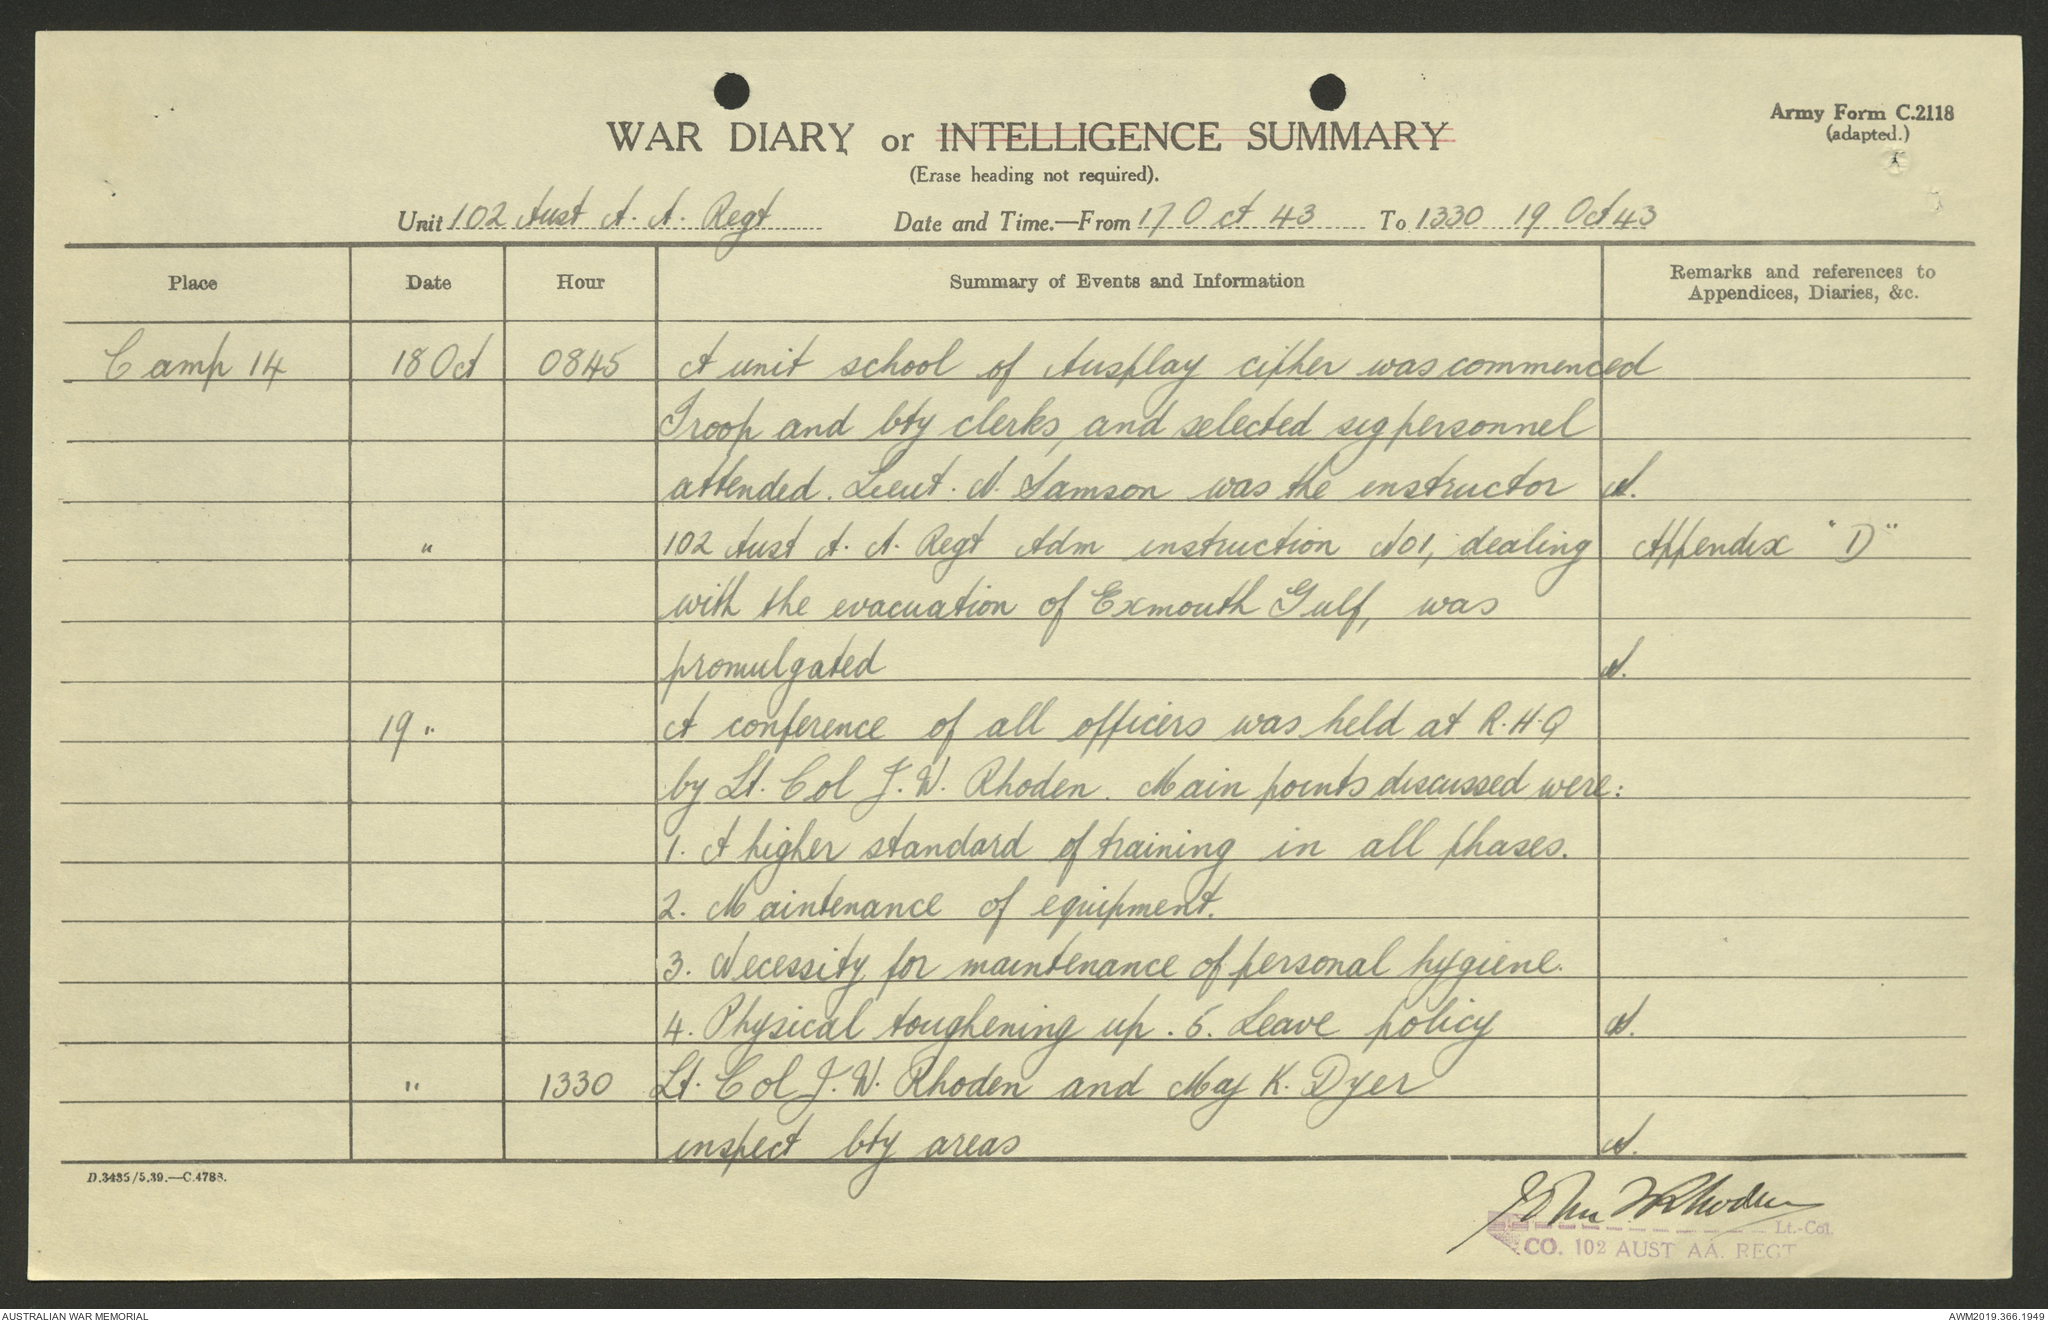 Army Form C.2118
(adapted.)
WAR DIARY or INTELLIGENCE SUMMARY
(Erase heading not required).
Unit 102 Aust A. A. Regt Date and Time.—From 17 Oct 43 To 1330 19 Oct 43
Place Date Hour Summary of Events and Information Remarks and references to
Appendices, Diaries, &c.
Camp 14 18 Oct 0845 A unit school of Ausplay cipher was commenced
Troop and bty clerks, and selected sig personnel
attended. Lieut. N. Samson was the instructor
" 102 Aust A. A. Regt Adm instruction No 1, dealing Appendix "D"
with the evacuation of Exmouth Gulf, was
promulgated
19 " A conference of all officers was held at R.H.Q
by Lt. Col J. W. Rhoden. Main points discussed were:
1. A higher standard of training in all phases.
2. Maintenance of equipment.
3. Necessity for maintenance of personal hygiene.
4. Physical toughening up. 5. Leave policy
" 1330 Lt. Col J. W. Rhoden and Maj K. Dyer
inspect bty areas
D.3435/5.39.—C.4788.
John W Rhoden
Lt.-Col.
CO. 102 AUST AA. REGT
AUSTRALIAN WAR MEMORIAL AWM2019.366.1949